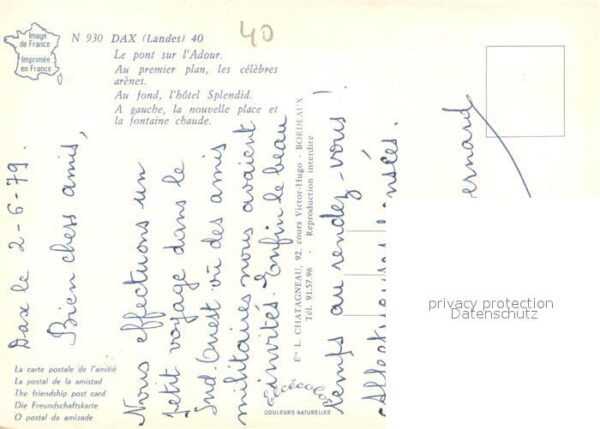 Image
de France
Imprimée
en France
N 930 DAX (Landes) 40
40
Le pont sur l'Adour.
Au premier plan, les célèbres
arènes.
Au fond, l'hôtel Splendid.
A gauche, la nouvelle place et
la fontaine chaude.
Dax le 2-6-79.
Bien chers amis,
Nous effectuons un
petit voyage dans le
Sud-Ouest où des amis
militaires nous avaient
invités. Enfin le beau
temps au rendez-vous !
Affectueuses pensées.
ernard
Ets L. CHATAGNEAU, 92, cours Victor-Hugo - BORDEAUX
Tél. 91.57.96 - Reproduction interdite
La carte postale de l'amitié
La postal de la amistad
The friendship post card
Die Freundschaftskarte
O postal da amizade
COULEURS NATURELLES
privacy protection
Datenschutz